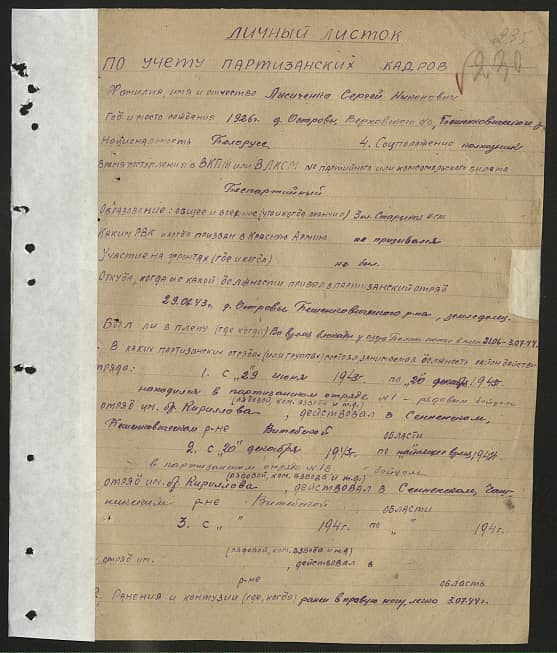 235
230
ЛИЧНЫЙ ЛИСТОК
ПО УЧЕТУ ПАРТИЗАНСКИХ КАДРОВ
Фамилия, имя и отчество Лисиченко Сергей
Год и место рождения 1926г. д. Островы, Бешенковичского р
Национальность Белорус 4. Соцположение
Время поступления в ВКП/б/ или ВЛКСМ № партийного или комсомольского билета
Беспартийный
Образование: общее и военное (что и когда окончил)
Каким РВК и когда призван в Красную Армию не призывался
Участие на фронтах (где и когда) не был.
Откуда, когда и с какой должности пришел в партизанский отряд
29.06.43г. д. Островы Бешенковичского р-на, земледелец.
Был ли в плену (где когда) Во время блокады у озера 3.07.44г.
В каких партизанских отрядах (или группах) находился занимаемая должность район действия
отряда: 1. С "29" июня 1943г. по "20" декабря 1943г.
находился в партизанском отряде №1 - рядовым бойцом
(рядовой, ком. взвода и т.д.)
отряд им. бр Кириллова, действовал в Сенненском,
Бешенковичском р-не Витебской области
2. С "20" декабря 1943г. по 194 г.
в партизанском отряде №18 бойцом
(рядовой, ком. взвода и т.д.)
отряд им. бр Кириллова, действовал в Сенненском, Чаш-
никском р-не Витебской области
3. С " " 194 г. по " " 194 г.
(рядовой, ком. взвода и т.д.)
отряд им. , действовал в
р-не область
Ранения и контузии (где, когда) ранен в правую ногу легко 3.07.44г.